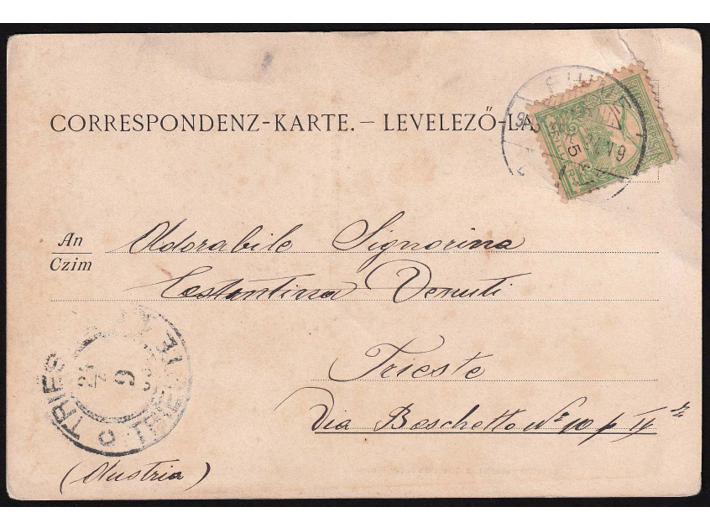 CORRESPONDENZ-KARTE. – LEVELEZŐ-LA
FIUME
An
Czim
Adorabile Signorina
Costantina Venuti
Trieste
Via Boschetto No 10 p II
TRIEST TRIESTE
(Austria)